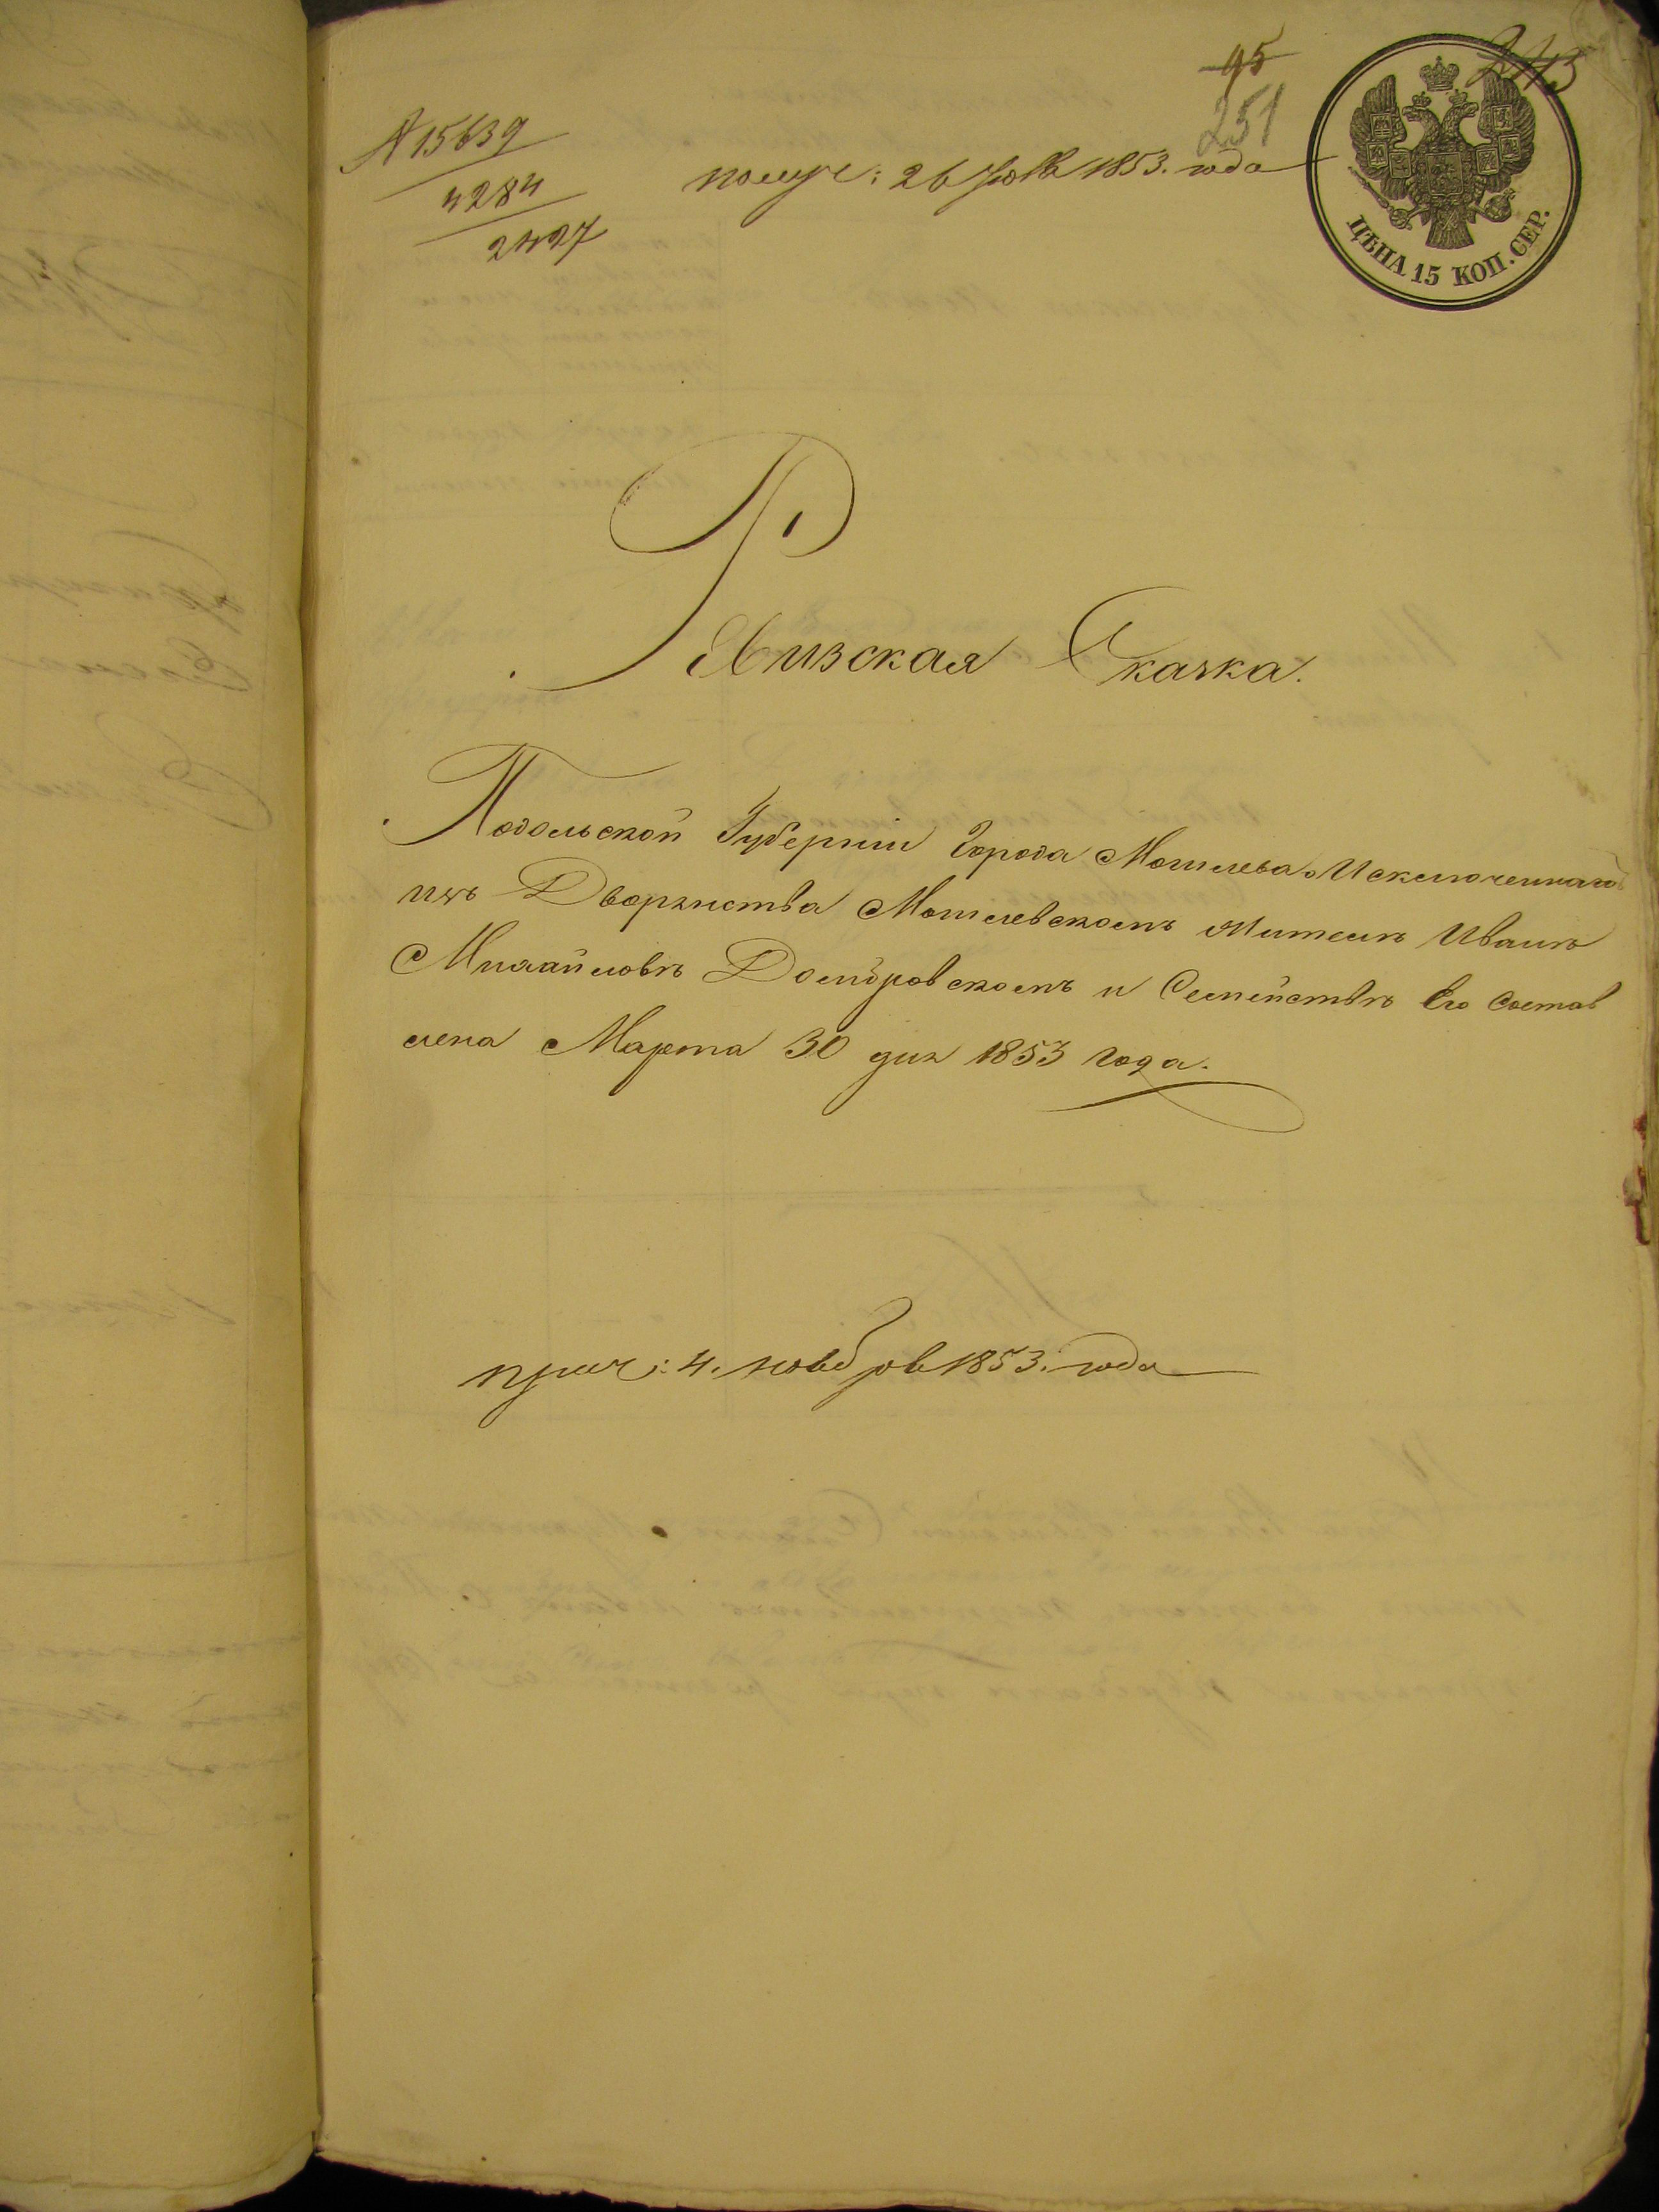 95
251
243
№ 15639
4284
2427
получ: 26 Июля 1853. года
ЦѢНА 15 КОП. СЕР.
Ревизская Сказка.
Подольской Губерніи Города Могилева о Исключенномъ
изъ Дворянства Могилевскомъ Жителѣ Иванѣ
Михайловѣ Домбровскомъ и Семействѣ Его Состав
лена Марта 30 дня 1853 года.
4. ноября 1853. года